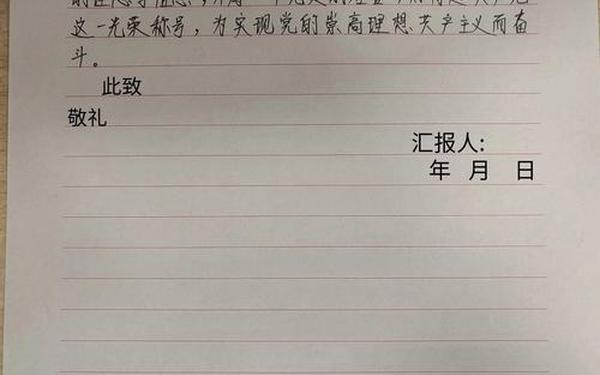 这一光荣称号，为实现党的崇高理想共产主义而奋
斗。
此致
敬礼
汇报人:
年 月 日